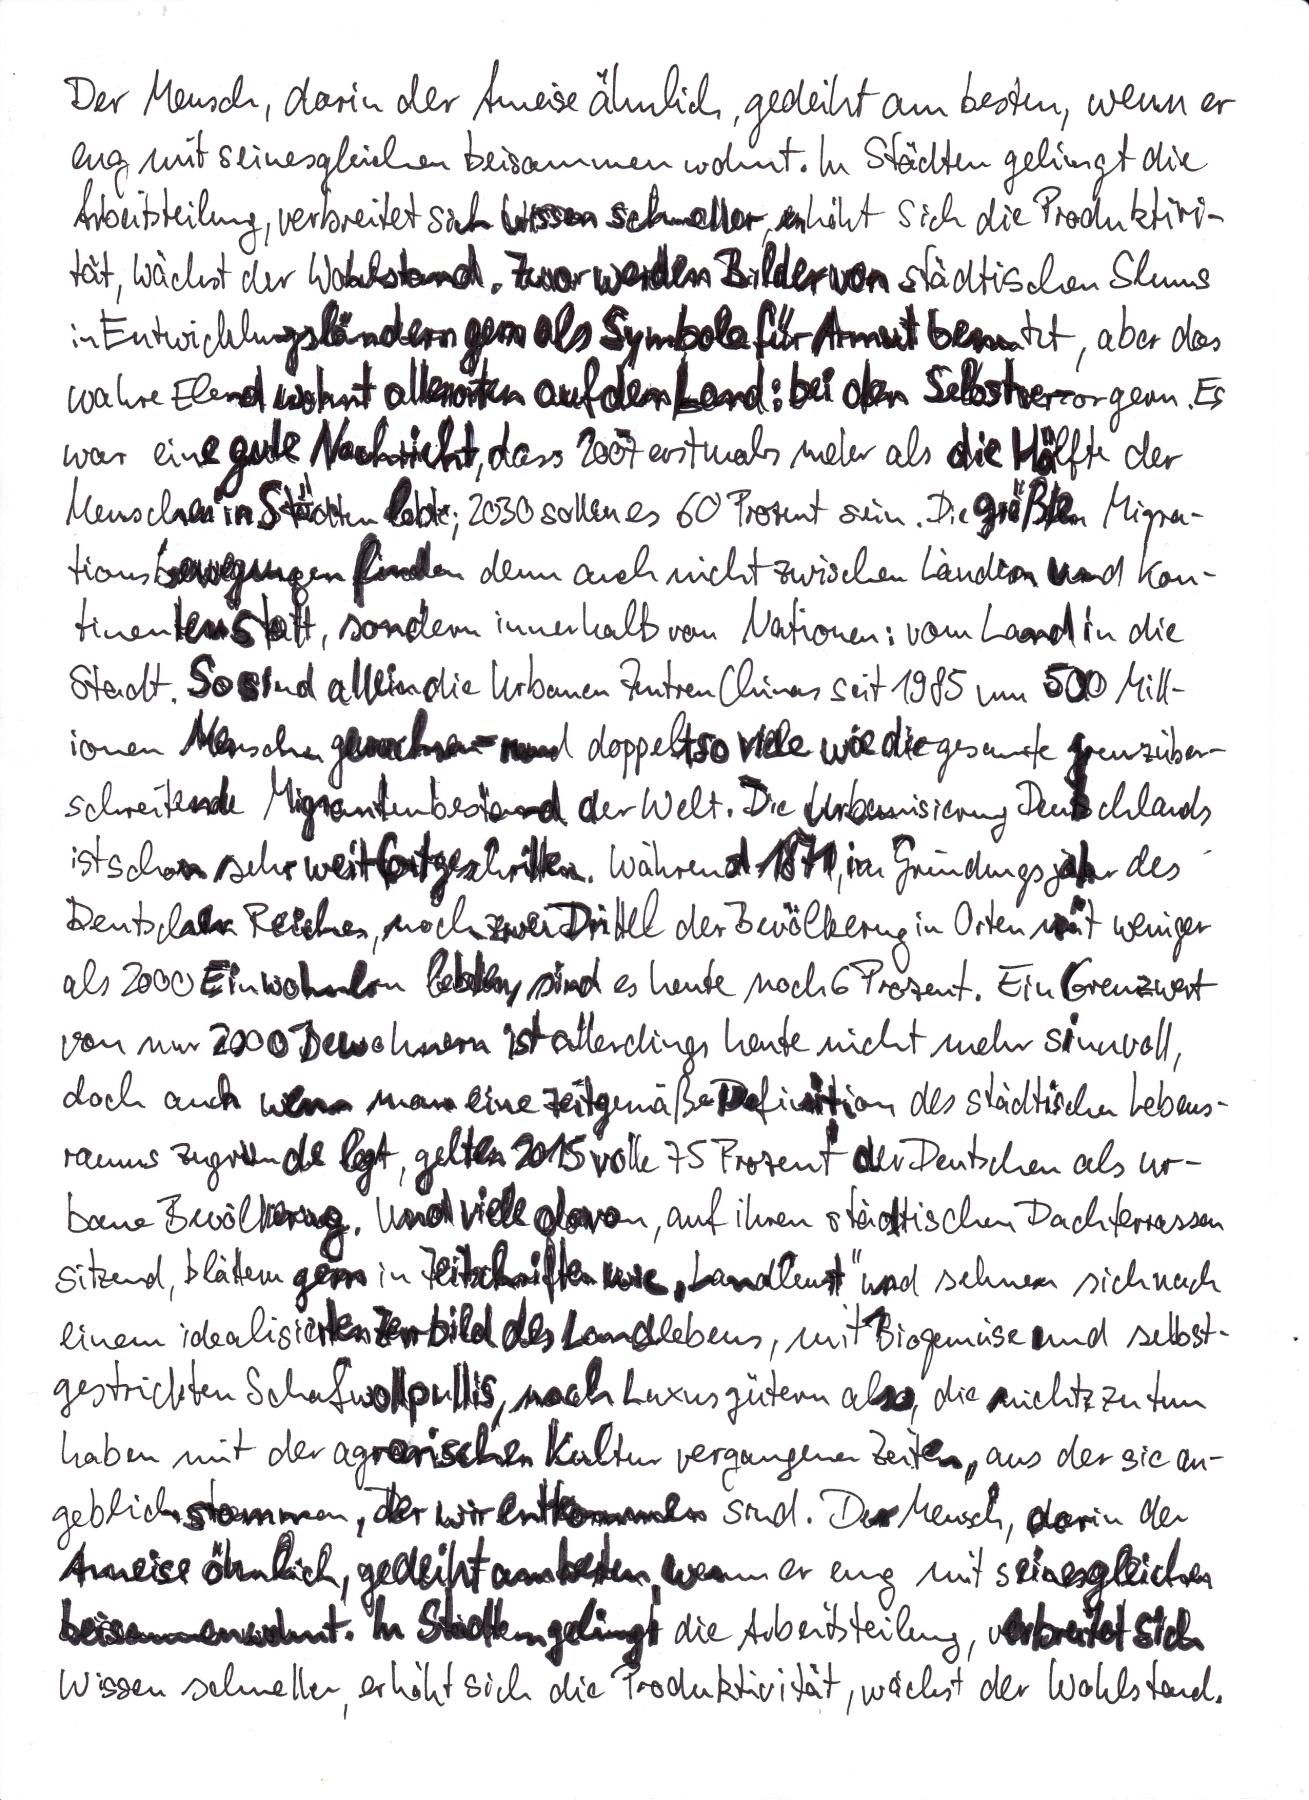 Der Mensch, darin der Ameise ähnlich, gedeiht am besten, wenn er
eng mit seinesgleichen beisammen wohnt. In Städten gelingt die
Arbeitsteilung, verbreitet sich Wissen schneller, erhöht sich die Produktivi-
tät, wächst der Wohlstand. Zwar werden Bilder von städtischen Slums
in Entwicklungsländern gern als Symbole für Armut benutzt, aber das
wahre Elend wohnt allerorten auf dem Land: bei den Selbstversorgern. Es
war eine gute Nachricht, dass 2007 erstmals mehr als die Hälfte der
Menschen in Städten lebte; 2030 sollen es 60 Prozent sein. Die größten Migra-
tionsbewegungen finden denn auch nicht zwischen Ländern und Kon-
tinenten statt, sondern innerhalb von Nationen: vom Land in die
Stadt. So sind allein die urbanen Zentren Chinas seit 1985 um 500 Mill-
ionen Menschen gewachsen – rund doppelt so viele wie die gesamte grenzüber-
schreitende Migrantenbestand der Welt. Die Urbanisierung Deutschlands
ist schon sehr weit fortgeschritten. Während 1871, im Gründungsjahr des
Deutschen Reiches, noch zwei Drittel der Bevölkerung in Orten mit weniger
als 2000 Einwohnern lebten, sind es heute noch 6 Prozent. Ein Grenzwert
von nur 2000 Bewohnern ist allerdings heute nicht mehr sinnvoll,
doch auch wenn man eine zeitgemäße Definition des städtischen Lebens-
raums zugrunde legt, gelten 2015 volle 75 Prozent der Deutschen als ur-
bane Bevölkerung. Und viele davon, auf ihren städtischen Dachterrassen
sitzend, blättern gern in Zeitschriften wie „Landlust" und sehnen sich nach
einem idealisierten Zerrbild des Landlebens, mit Biogemüse und selbst-
gestrickten Schafwollpullis, nach Luxusgütern also, die nichts zu tun
haben mit der agrarischen Kultur vergangener Zeiten, aus der sie an-
geblich stammen, der wir entkommen sind. Der Mensch, darin der
Ameise ähnlich, gedeiht am besten, wenn er eng mit seinesgleichen
beisammen wohnt. In Städten gelingt die Arbeitsteilung, verbreitet sich
Wissen schneller, erhöht sich die Produktivität, wächst der Wohlstand.